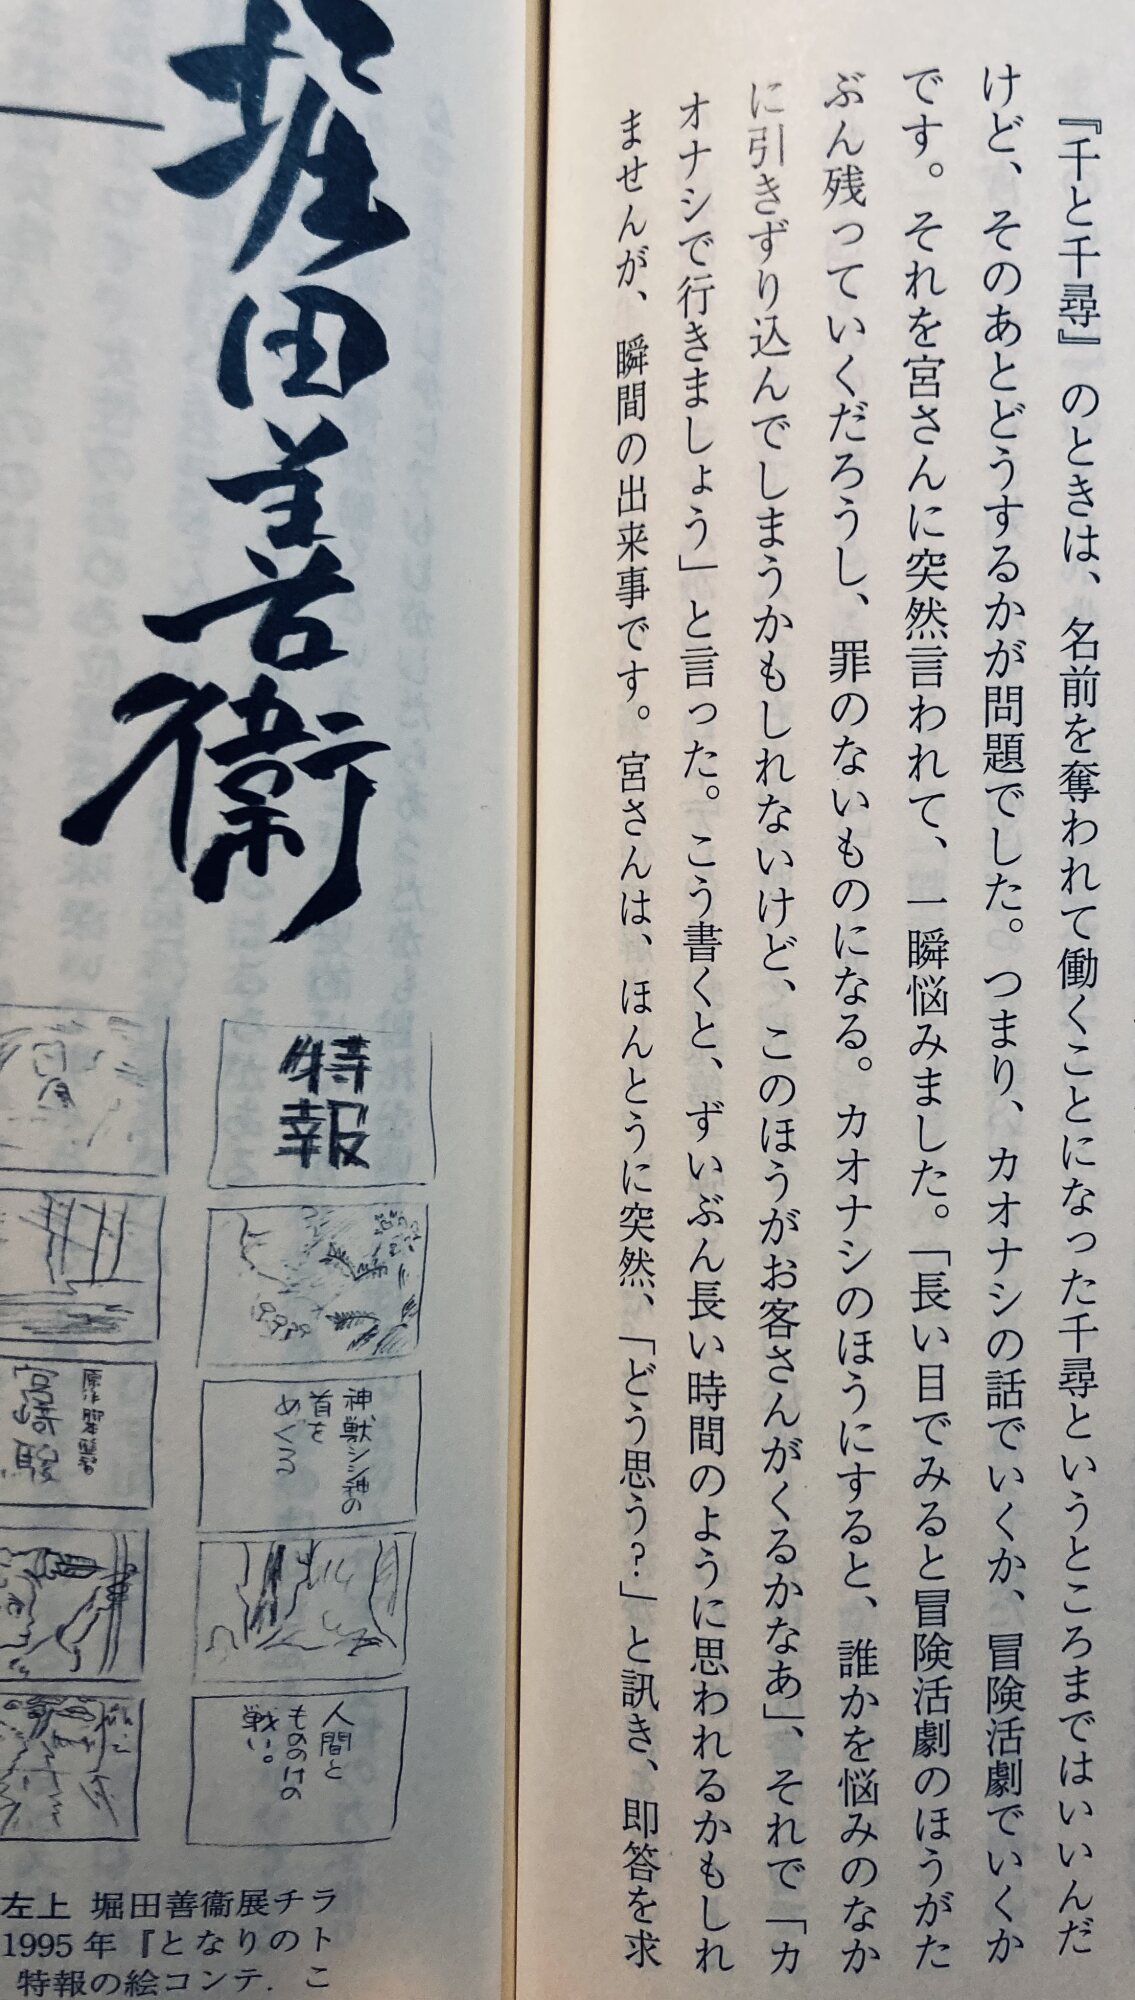 『千と千尋』のときは、名前を奪われて働くことになった千尋というところまではいいんだ
けど、そのあとどうするかが問題でした。つまり、カオナシの話でいくか、冒険活劇でいくか
です。それを宮さんに突然言われて、一瞬悩みました。「長い目でみると冒険活劇のほうがた
ぶん残っていくだろうし、罪のないものになる。カオナシのほうにすると、誰かを悩みのなか
に引きずり込んでしまうかもしれないけど、このほうがお客さんがくるかなあ」、それで「カ
オナシで行きましょう」と言った。こう書くと、ずいぶん長い時間のように思われるかもしれ
ませんが、瞬間の出来事です。宮さんは、ほんとうに突然、「どう思う？」と訊き、即答を求
堀田善衞
特報
神獣シシ神の
首を
めぐる
人間と
もののけの
戦い。
原作・脚本・監督
宮崎駿
左上 堀田善衞展チラ
1995年『となりのト
特報の絵コンテ．こ